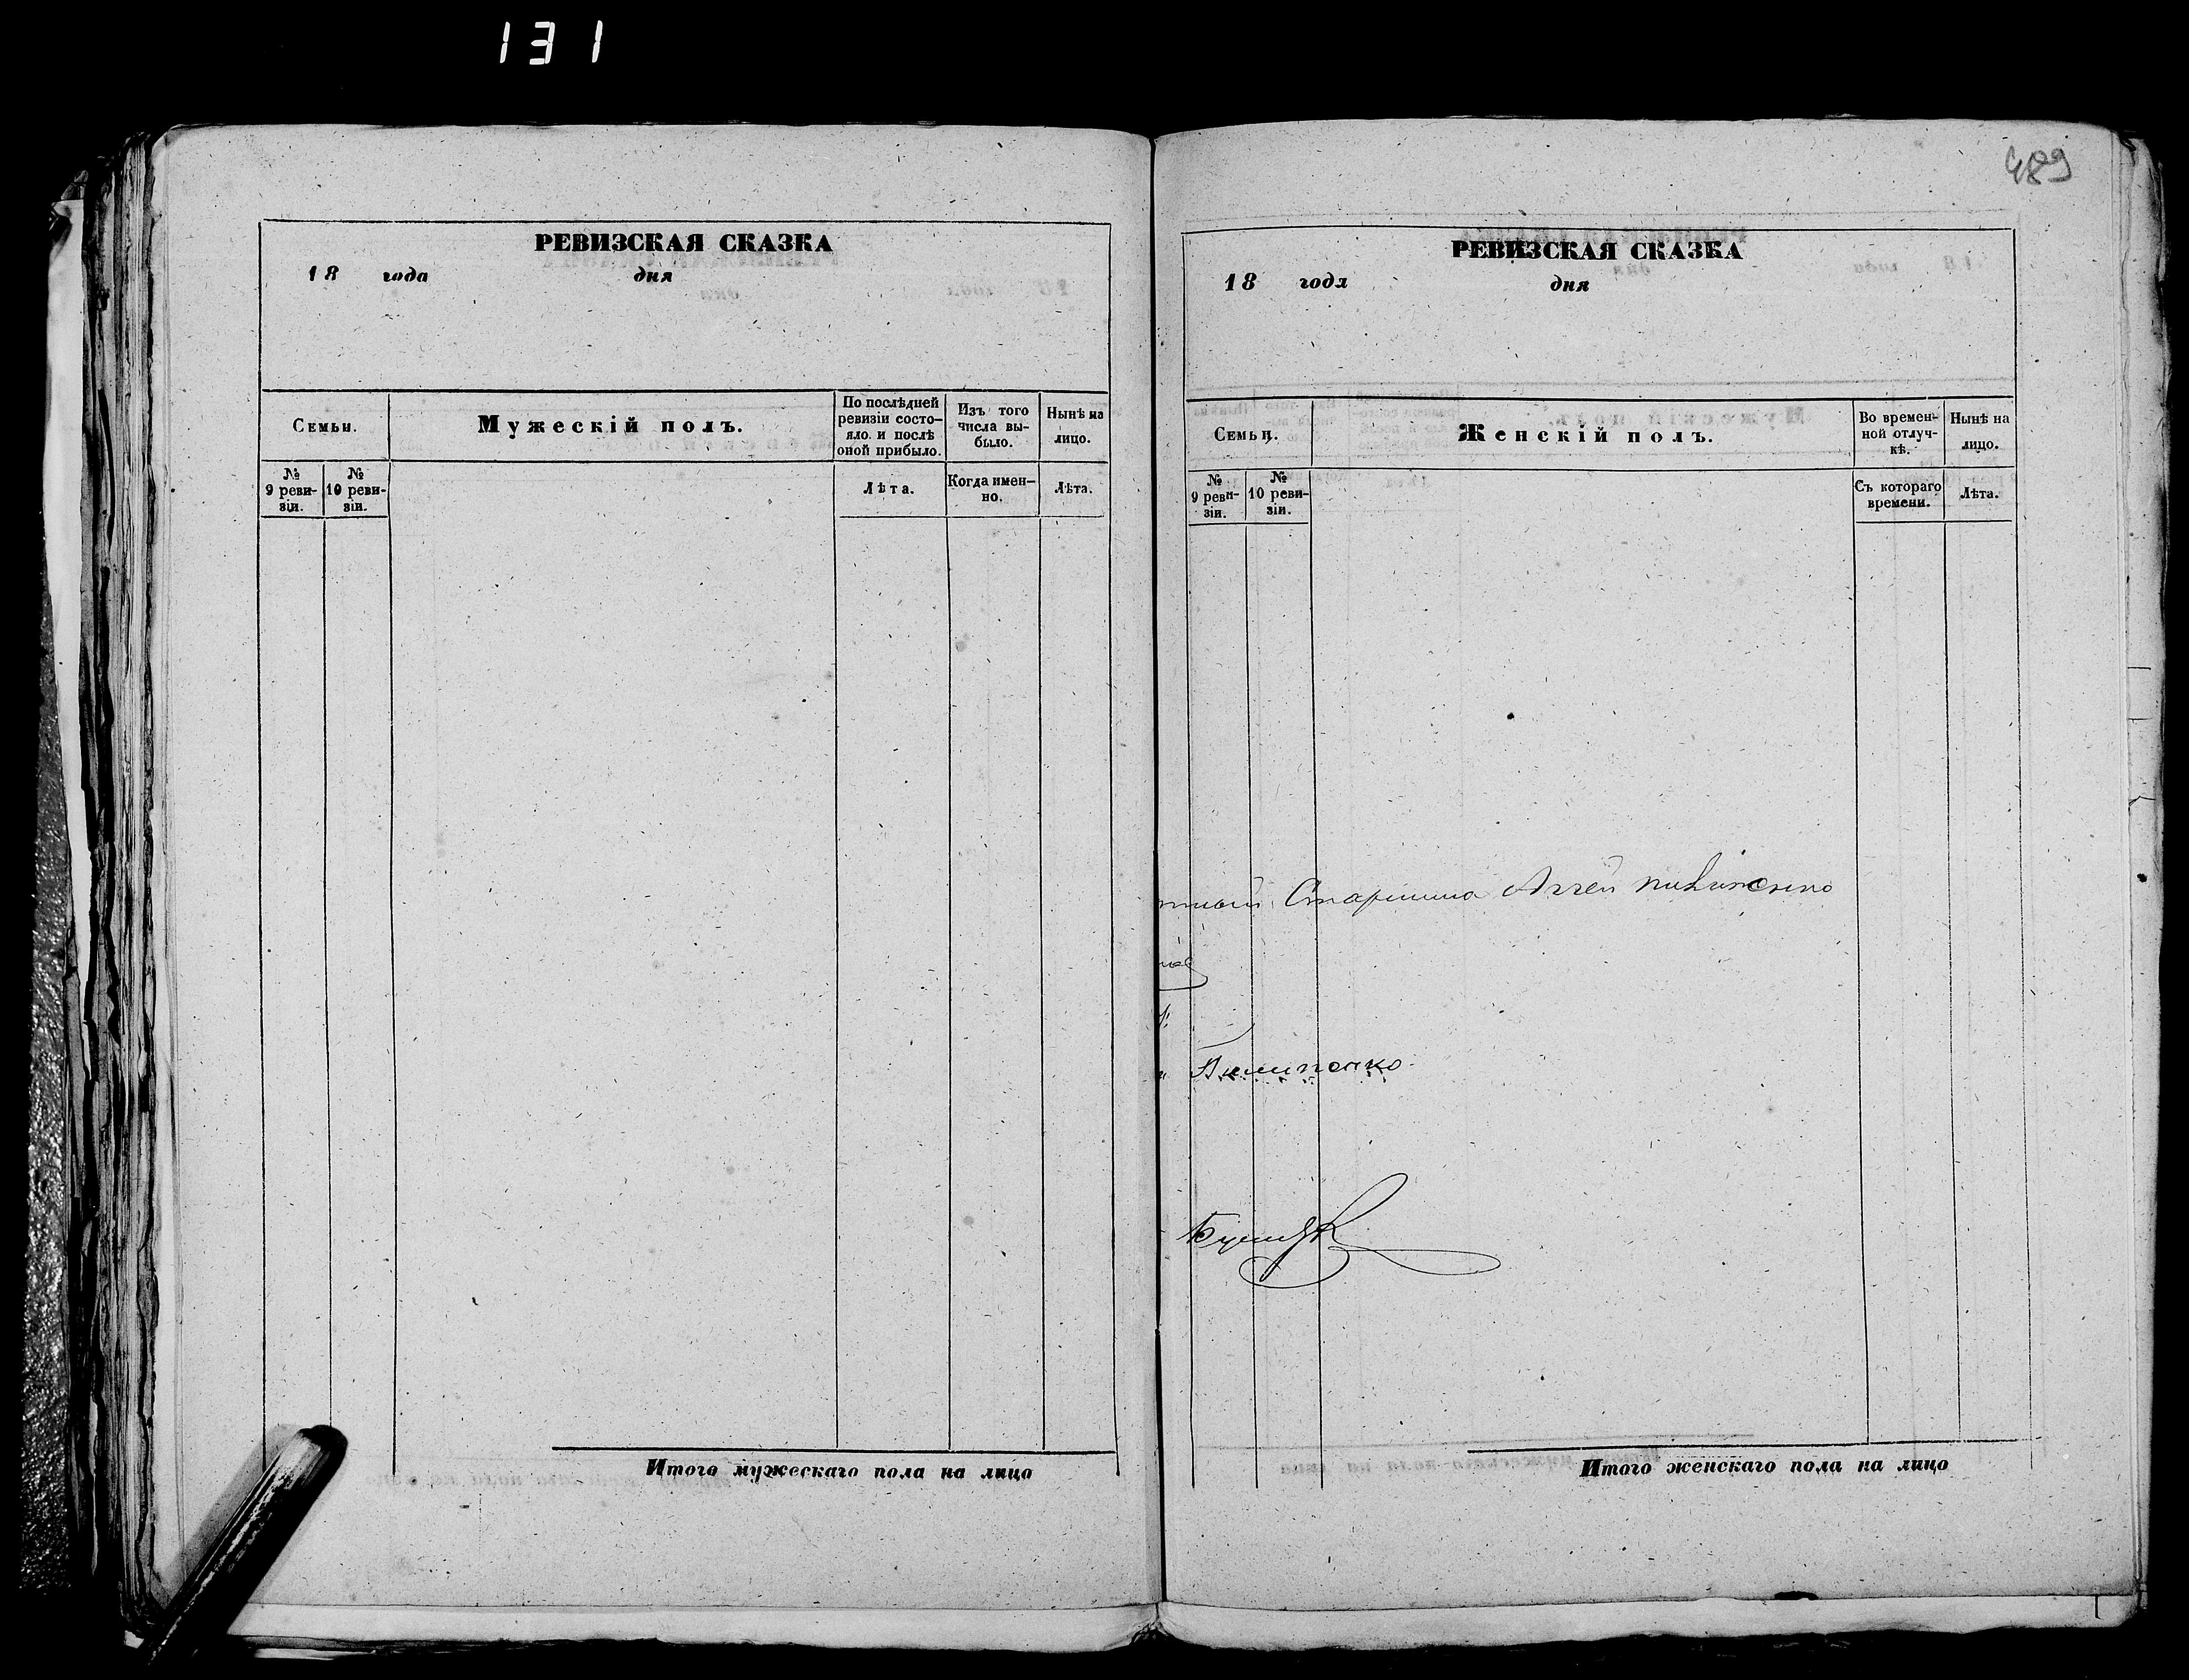 131
РЕВИЗСКАЯ СКАЗКА
18 года дня
Семьи.
Мужескій полъ.
По послѣдней ревизіи состо-
яло и послѣ оной прибыло.
Изъ того числа вы-
было.
Нынѣ на лицо.
№ 9 реви-
зіи.
№ 10 реви-
зіи.
Лѣта.
Когда имен-
но.
Лѣта.
Итого мужескаго пола на лицо
489
РЕВИЗСКАЯ СКАЗКА
18 года дня
Семьи.
Женскій полъ.
Во времен-
ной отлуч-
кѣ.
Нынѣ на лицо.
№ 9 реви-
зіи.
№ 10 реви-
зіи.
Съ котораго времени.
Лѣта.
Старшина
Итого женскаго пола на лицо